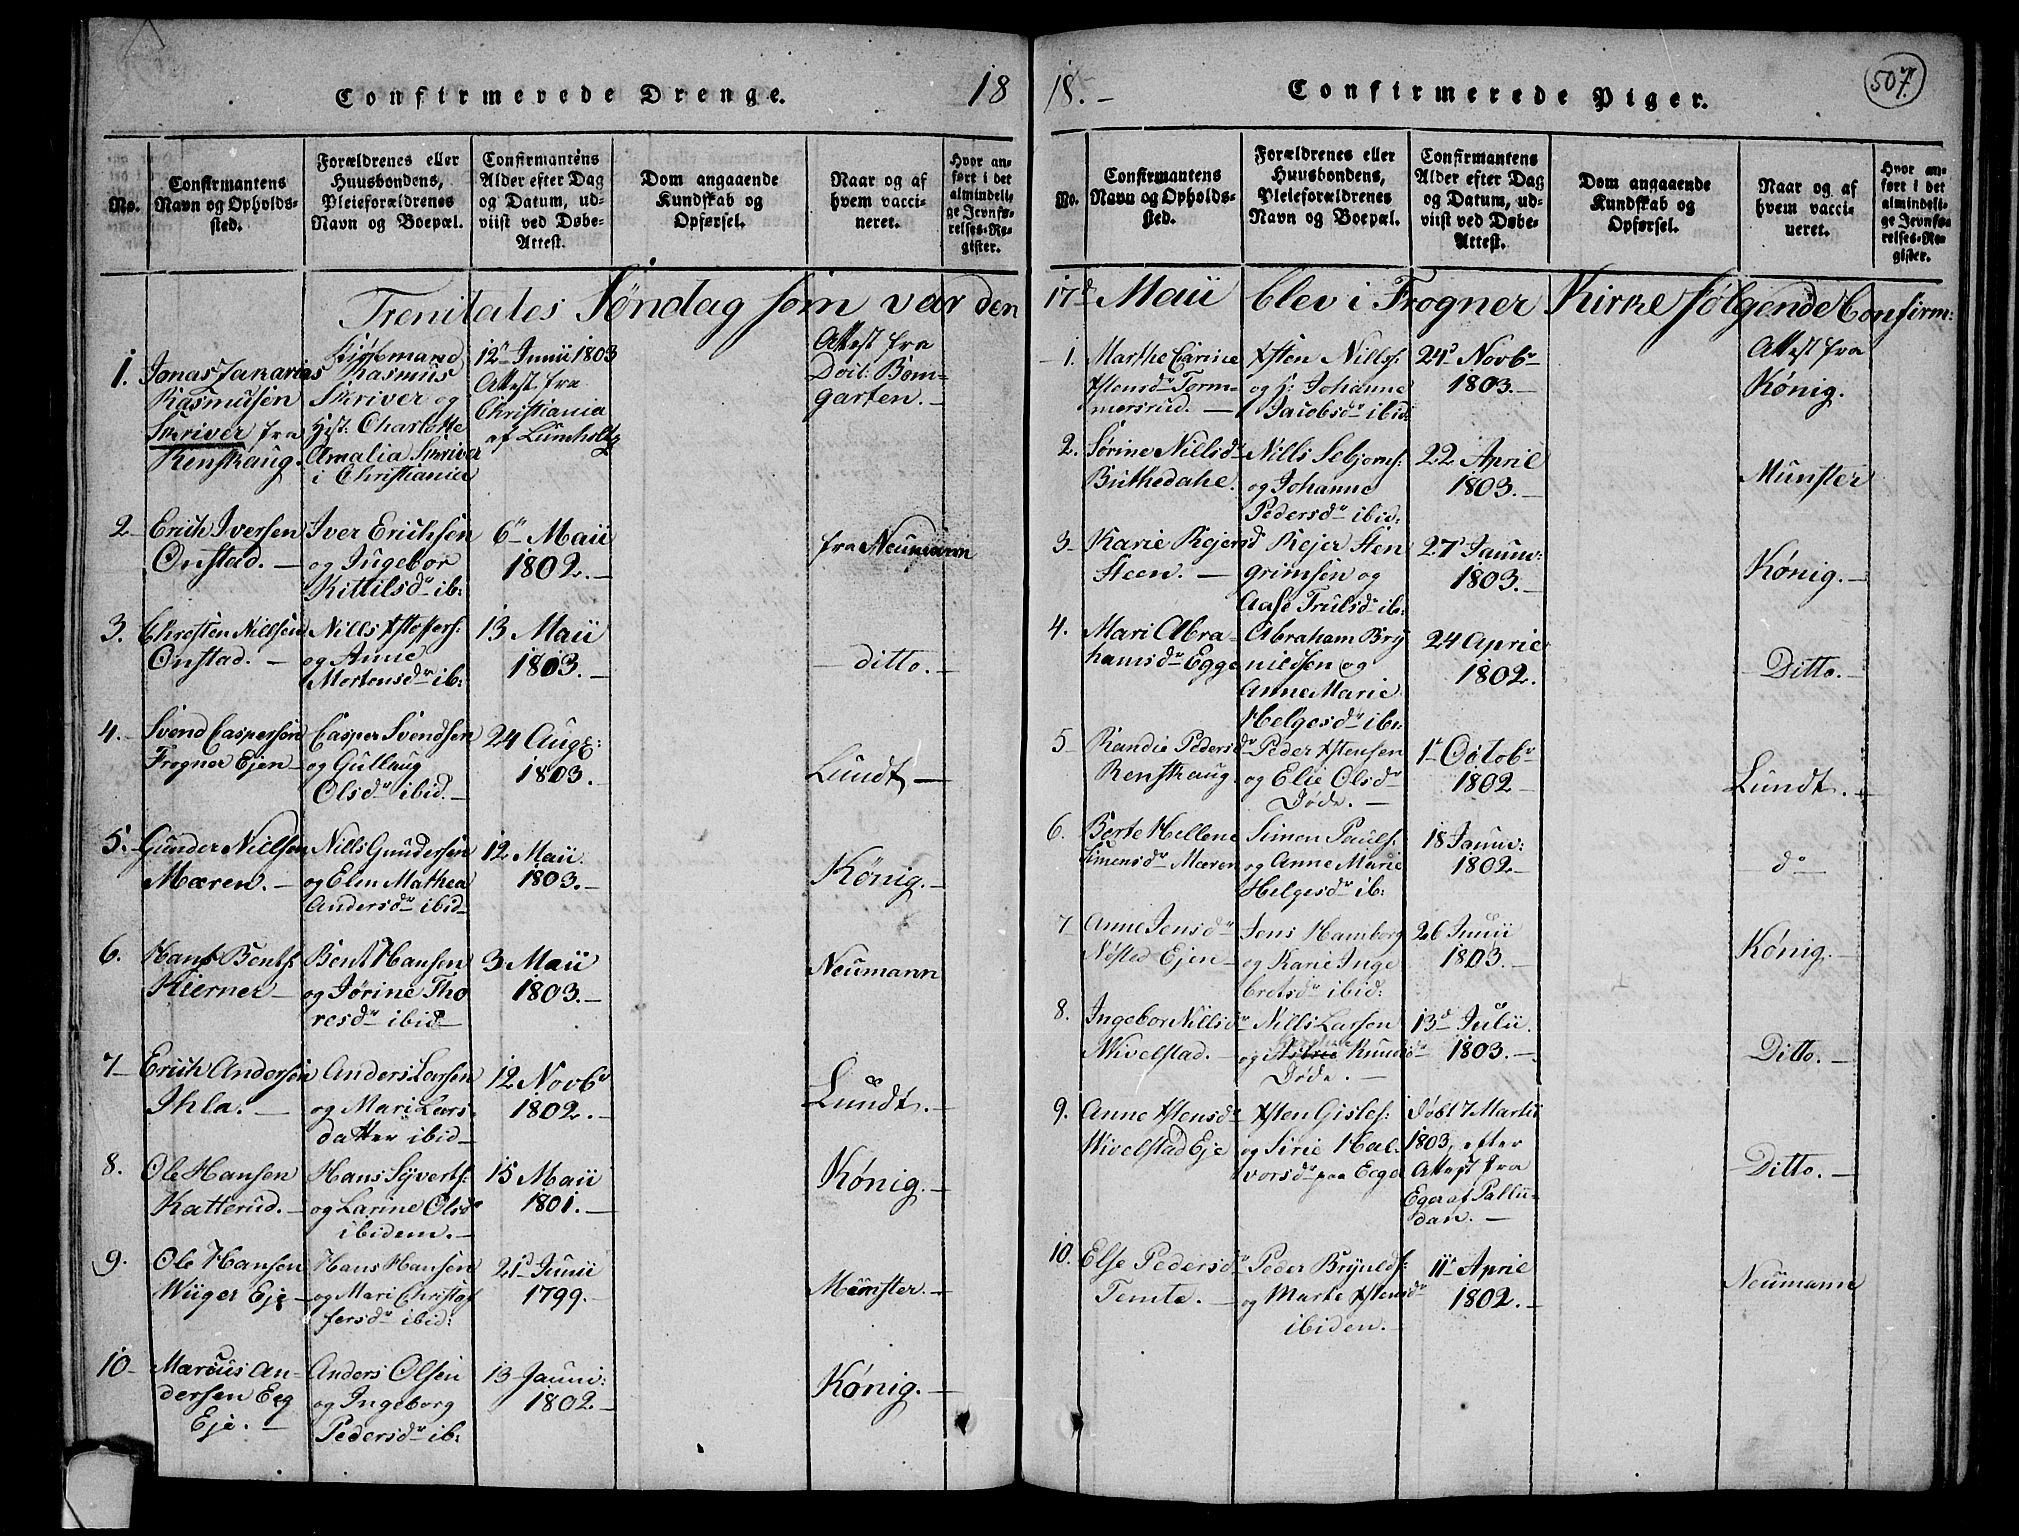 Confirmerede Drenge.
18
No.
Confirmantens
Navn og Opholds-
sted.
Forældrenes eller
Huusbondens,
Pleieforældrenes
Navn og Boepæl.
Confirmantens
Alder efter Dag
og Datum, ud-
viist ved Døbe-
Attest.
Dom angaaende
Kundskab og
Opførsel.
Naar og af
hvem vacci-
neret.
Hvor an-
ført i det
almindeli-
ge Jevnfø-
relses-Re-
gister.
Trenitates Søndag som var den
1.
Jonas Janarias
Rasmusen
Skriver fra
Renskaug.
Rasmus
Skriver og
Hst: Charlotte
Amalia Skriver
i Christiania
12te Junii 1803
Attest fra
Christiania
af Lumholtz
Attest fra
Doct: Bøm-
garten. -
2
Erich Iversen
Onstad. -
Iver Erichsen
og Ingebor
Kittilsdr ib:
6te Maii
1802. -
fra Neumann
3.
Chresten Nillsen
Onstad. -
Nills Xstoffers:
og Anne
Mortensdr ib:
13 Maii
1803. -
- ditto. -
4.
Svend Caspersen
Frogner Ejen -
Casper Svendsen
og Gullaug
Olsdr ibid. -
24 Augs:
1803. -
Lundt -
5.
Gunder Nillsen
Mæren. -
Nills Gundersen
og Elen Mathea
Andersdr ibid -
12 Maii
1803. -
König. -
6.
Hans Bents:
Kierner -
Bent Hansen
og Jørine Tho
resdr ibid -
3 Maii
1803. -
Neumann
7
Erich Andersen
Ihla. -
Anders Larsen
og Mari Lars-
datter ibid -
12 Novbr
1802. -
Lundt. -
8.
Ole Hansen
Katterud. -
Hans Syverts:
og Larine Olsdr
ibidem. -
15 Maii
1801. -
König. -
9.
Ole Hansen
Wiiger Eje -
Hans Hansen
og Mari Christof
fersdr ibid:
21d Junii
1799. -
Münster. -
10
Marcus An-
dersen Eeg
Eje. -
Anders Olsen
og Ingeborg
Pedersdr ib:
13 Janu:
1802. -
König. -
18. -
Confirmerede Piger.
507.
No.
Confirmantens
Navn og Opholds-
sted.
Forældrenes eller
Huusbondens,
Pleieforældrenes
Navn og Boepæl.
Confirmantens
Alder efter Dag
og Datum, ud-
viist ved Døbe-
Attest.
Dom angaaende
Kundskab og
Opførsel.
Naar og af
hvem vacci-
neret.
Hvor an-
ført i det
almindeli-
ge Jevnfø-
relses-Re-
gister.
17d Maii blev i Frogner Kirke følgende Confirm:
1.
Marthe Carine
Xstensdr Torm-
mersrud. -
Xsten Nills:
og H: Johanne
Jacobsdr ibid:
24d Novbr
1803. -
Attest fra
König.
2.
Sørine Nillsdr
Buthedahe.
Nills Sebjorns:
og Johanne
Pedersdr ibid:
22 April
1803. -
Münster
3
Karie Rejersd
Steen. -
Rejer Sten
grimsen og
Aase Trulsdr ib:
27d Janu:
1803. -
König. -
4.
Mari Abra-
hamsdr Egge
Abraham Bry
nildsen og
Anne Marie
Helgesdr ib:
24 April
1802.
Ditto. -
5
Randie Pedersdr
Renskaug
Peder Xstensen
og Elie Olsdr
Døde. -
1d Octobr
1802
Lundt. -
6.
Berte Hellene
Simensdr Mæren
Simen Pauls:
og Anne Marie
Helgesdr ib:
18 Janu:
1802 -
- do -
7
Anne Jensdr
Nøsted Ejen -
Jens Hamborg
og Karie Inge
bretsdr ibid:
26 Junii
1803. -
König. -
8.
Ingebor Nillsdr
Wivelstad. -
Nills Larsen
og Knudsd
Døde. -
13d Julii
1803. -
Ditto. -
9.
Anne Xstensdr
Wivelstad Eje
Xsten Gisles:
og Sirie Hal-
vorsdr paa Eege
Døbt 7 Martii
1803, efter
Attest fra
Eger af Pallu-
dan. -
Ditto. -
10.
Else Pedersdr
Temte. -
Peder Brynilds:
og Marte Xstensdr
ibiden. -
11d April
1802. -
Neumann